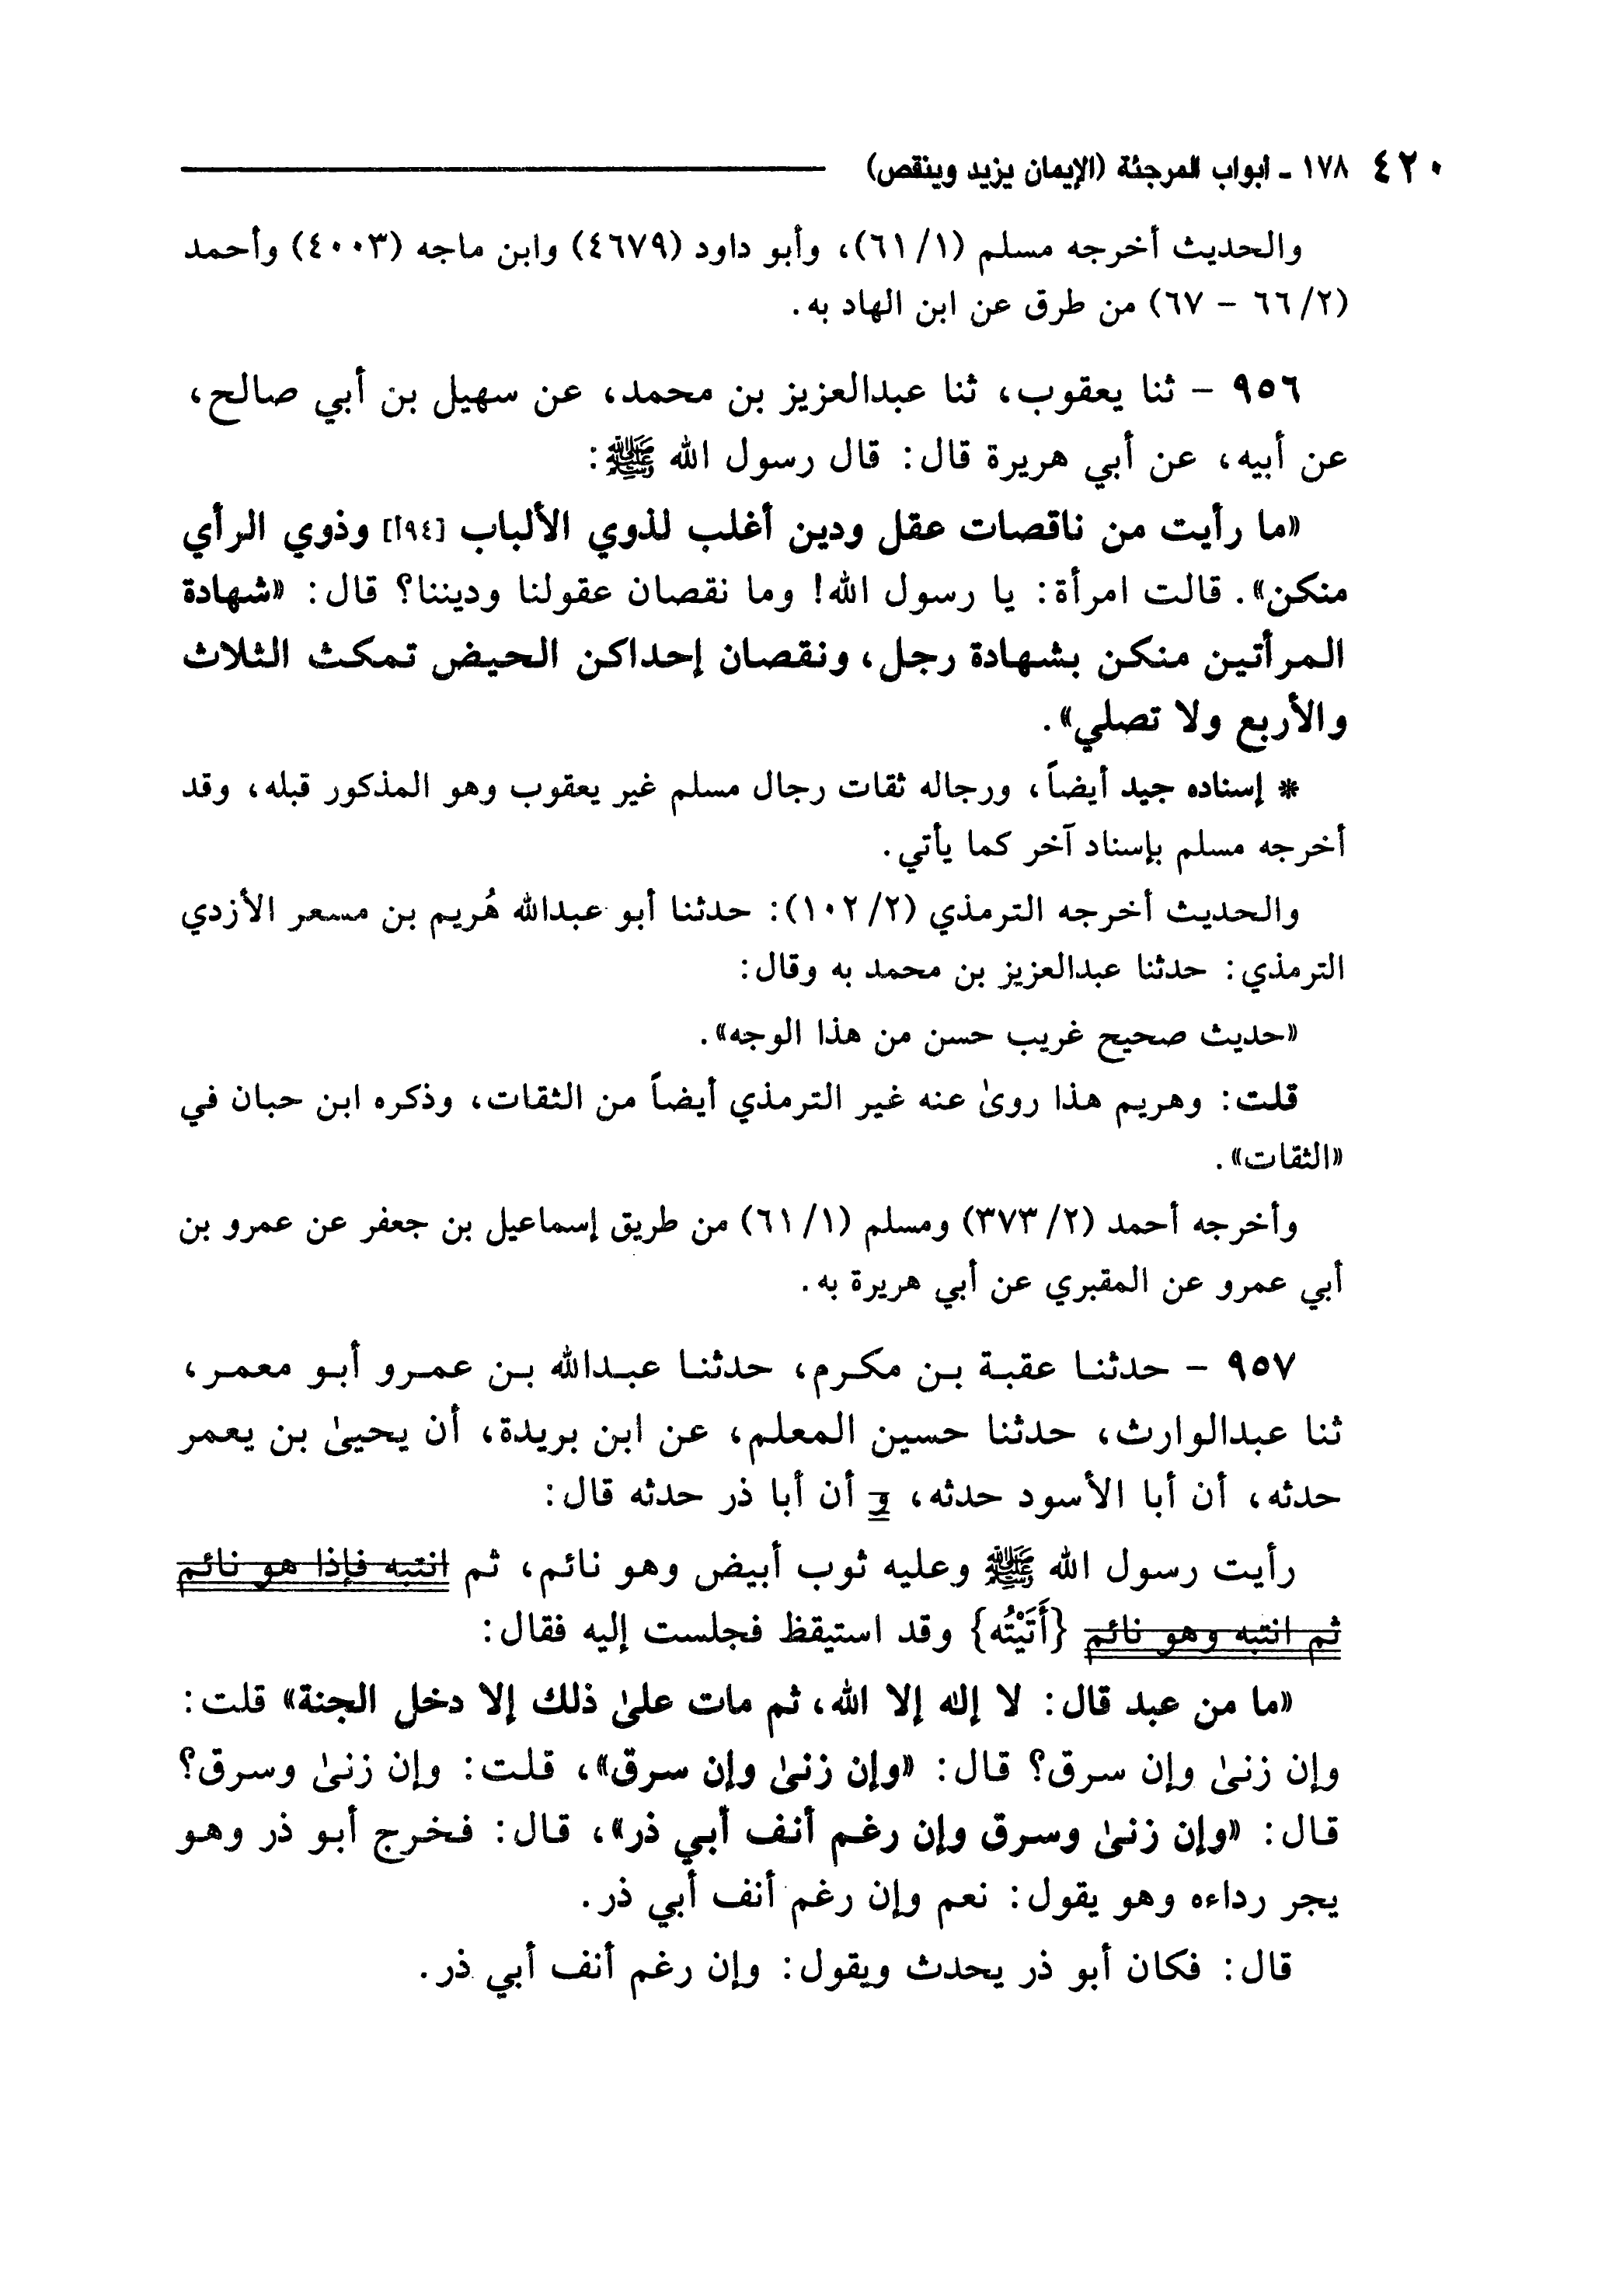 ٤٢٠ ١٧٨ ـ أبواب المرجئة (الإيمان يزيد وينقص)
والحديث أخرجه مسلم (١/ ٦١)، وأبو داود (٤٦٧٩) وابن ماجه (٤٠٠٣) وأحمد
(٢/ ٦٦ - ٦٧) من طرق عن ابن الهاد به.
٩٥٦ - ثنا يعقوب، ثنا عبدالعزيز بن محمد، عن سهيل بن أبي صالح،
عن أبيه، عن أبي هريرة قال: قال رسول الله ﷺ:
«ما رأيت من ناقصات عقل ودين أغلب لذوي الألباب [٩٤أ] وذوي الرأي
منكن». قالت امرأة: يا رسول الله! وما نقصان عقولنا وديننا؟ قال: «شهادة
المرأتين منكن بشهادة رجل، ونقصان إحداكن الحيض تمكث الثلاث
والأربع ولا تصلي».
* إسناده جيد أيضاً، ورجاله ثقات رجال مسلم غير يعقوب وهو المذكور قبله، وقد
أخرجه مسلم بإسناد آخر كما يأتي.
والحديث أخرجه الترمذي (٢/ ١٠٢): حدثنا أبو عبدالله هُريم بن مسعر الأزدي
الترمذي: حدثنا عبدالعزيز بن محمد به وقال:
«حديث صحيح غريب حسن من هذا الوجه».
قلت: وهريم هذا روىٰ عنه غير الترمذي أيضاً من الثقات، وذكره ابن حبان في
«الثقات».
وأخرجه أحمد (٢/ ٣٧٣) ومسلم (١/ ٦١) من طريق إسماعيل بن جعفر عن عمرو بن
أبي عمرو عن المقبري عن أبي هريرة به.
٩٥٧ - حدثنا عقبة بن مكرم، حدثنا عبدالله بن عمرو أبو معمر،
ثنا عبدالوارث، حدثنا حسين المعلم، عن ابن بريدة، أن يحيىٰ بن يعمر
حدثه، أن أبا الأسود حدثه، و أن أبا ذر حدثه قال:
رأيت رسول الله ﷺ وعليه ثوب أبيض وهو نائم، ثم انتبه فإذا هو نائم
ثم انتبه وهو نائم {أَتَيْتُه} وقد استيقظ فجلست إليه فقال:
«ما من عبد قال: لا إله إلا الله، ثم مات علىٰ ذلك إلا دخل الجنة» قلت:
وإن زنىٰ وإن سرق؟ قال: «وإن زنىٰ وإن سرق»، قلت: وإن زنىٰ وسرق؟
قال: «وإن زنىٰ وسرق وإن رغم أنف أبي ذر»، قال: فخرج أبو ذر وهو
يجر رداءه وهو يقول: نعم وإن رغم أنف أبي ذر.
قال: فكان أبو ذر يحدث ويقول: وإن رغم أنف أبي ذر.